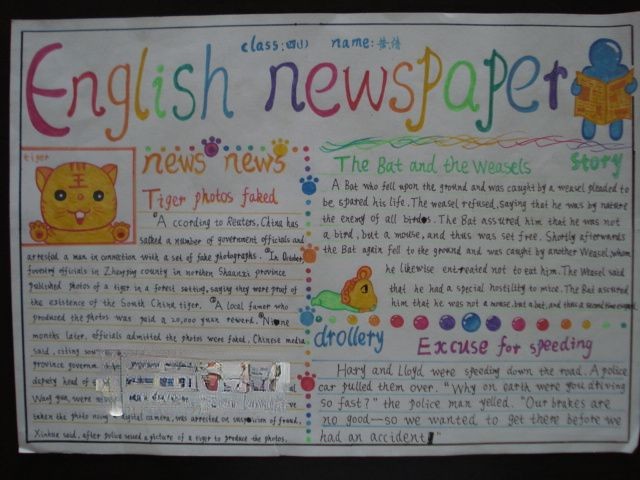 class:四(1) name:
English newspaper
tiger
王
news news
Tiger photos faked
A ccording to Reuters, China has
sacked a number of government officials and
arrested a man in connection with a set of fake photographs. In October
forestry officials in Zhenping county in northern Shaanxi province
published photos of a tiger in a forest setting, saying they were proof of
the existence of the South China tiger. A local famer who
produced the photos was paid a 20,000 yuan reward. Nine
months later, officials admitted the photos were faked. Chinese media
said, citing
province governm
deputy head of
Wang gun, were
taken the photo digital camera, was arrested on suspicion of fraud,
Xinhua said, after police seized a picture of a tiger to produce the photos.
The Bat and the Weasels
story
A Bat who fell upon the ground and was caught by a weasel pleaded to
be spared his life. The weasel refused, saying that he was by nature
the enemy of all birds. The Bat assured him that he was not
a bird, but a mouse, and thus was set free. Shortly afterwards
the Bat again fell to the ground and was caught by another Weasel, whom
he likewise entreated not to eat him. The Weasel said
that he had a special hostility to mice. The Bat assured
him that he was not a mouse, but a bat, and thus a second time escaped.
drollery
Excuse for speeding
Hary and Lloyd were speeding down the road. A police
car pulled them over. "Why on earth were you driving
so fast?" the police man yelled. "Our brakes are
no good—so we wanted to get there before we
had an accident!"